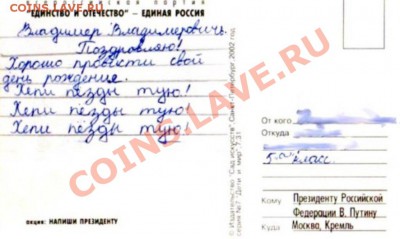 COINS.LAVE.RU
"ЕДИНСТВО И ОТЕЧЕСТВО" – ЕДИНАЯ РОССИЯ
Владимер Владимерович
Поздравляю!
Хорошо провести свой
день рождение.
Хепи пёзды тую!
Хепи пёзды тую!
Хепи пёзды тую!
акция: НАПИШИ ПРЕЗИДЕНТУ
© Издательство "Сад искусств", Санкт-Петербург, 2002 год
серия №7 "Дети и мир", 7.31
От кого
Откуда
класс.
Кому Президенту Российской
Федерации В. Путину
Куда Москва, Кремль
COINS.LAVE.RU